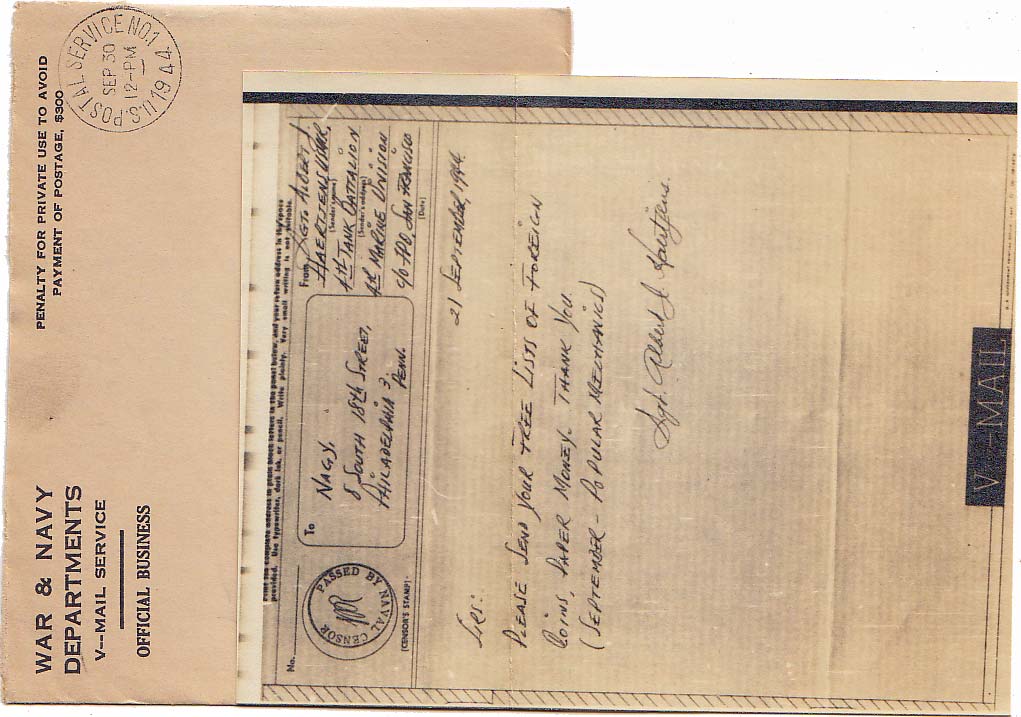 WAR & NAVY
DEPARTMENTS
V--MAIL SERVICE
OFFICIAL BUSINESS
PENALTY FOR PRIVATE USE TO AVOID
PAYMENT OF POSTAGE, $300
U.S. POSTAL SERVICE NO.1
SEP 30
12-PM
1944
Print the complete address in plain block letters in the panel below, and your return address in the space
provided. Use typewriter, dark ink, or pencil. Write plainly. Very small writing is not suitable.
No.
PASSED BY NAVAL CENSOR
(CENSOR'S STAMP)
To
NAGY,
8 SOUTH 18th STREET,
PHILADELPHIA 3,
PENN.
From
SGT. ALBERT J.
(Sender's name)
4th TANK BATTALION
(Sender's address)
4th MARINE DIVISION
c/o FPO, SAN FRANCISCO
(Date)
21 SEPTEMBER, 1944.
SIRS:
PLEASE SEND YOUR FREE LISTS OF FOREIGN
COINS, PAPER MONEY. THANK YOU.
(SEPTEMBER - POPULAR MECHANICS)
Sgt. Albert J.
V--MAIL